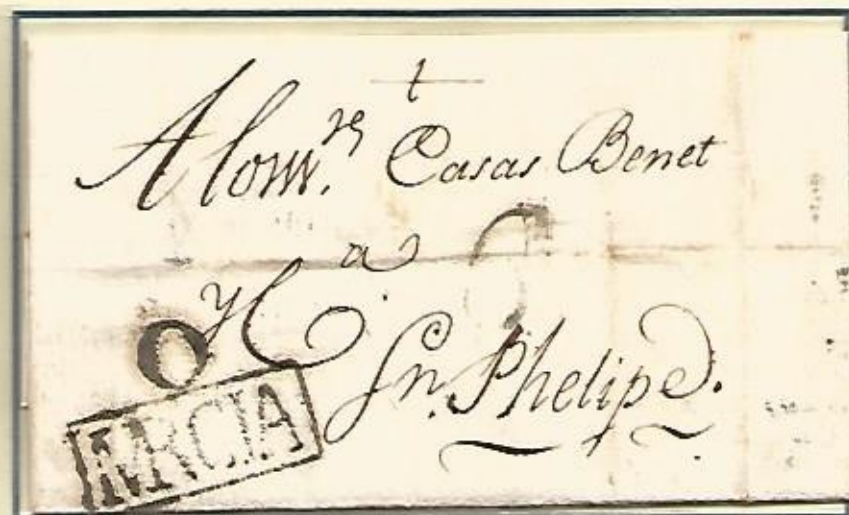 A los SS.res Casas Benet
y C.a
Sn. Phelipe.
MURCIA